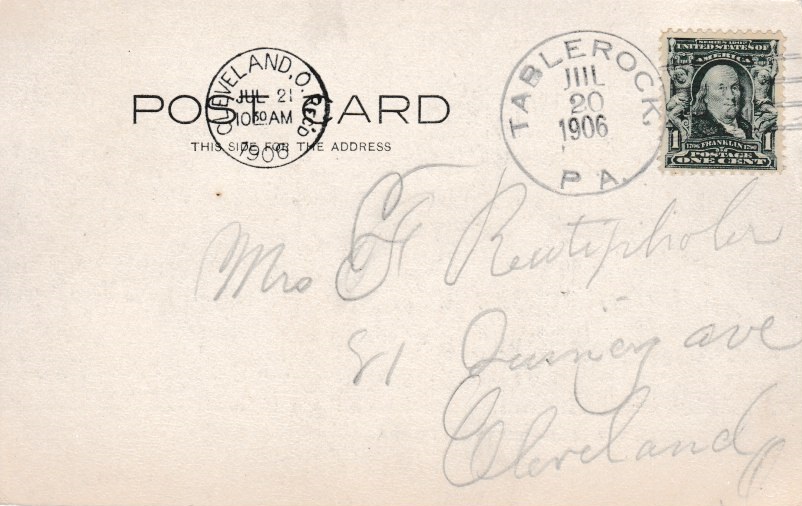 CLEVELAND, O. REC'D
JUL 21
10 30 AM
1906
POST CARD
THIS SIDE FOR THE ADDRESS
TABLEROCK,
JUL
20
1906
PA.
SERIES 1902
UNITED STATES OF
AMERICA
1706 FRANKLIN 1790
1 POSTAGE 1
ONE CENT
Mrs F
81 Quincy ave
Cleveland